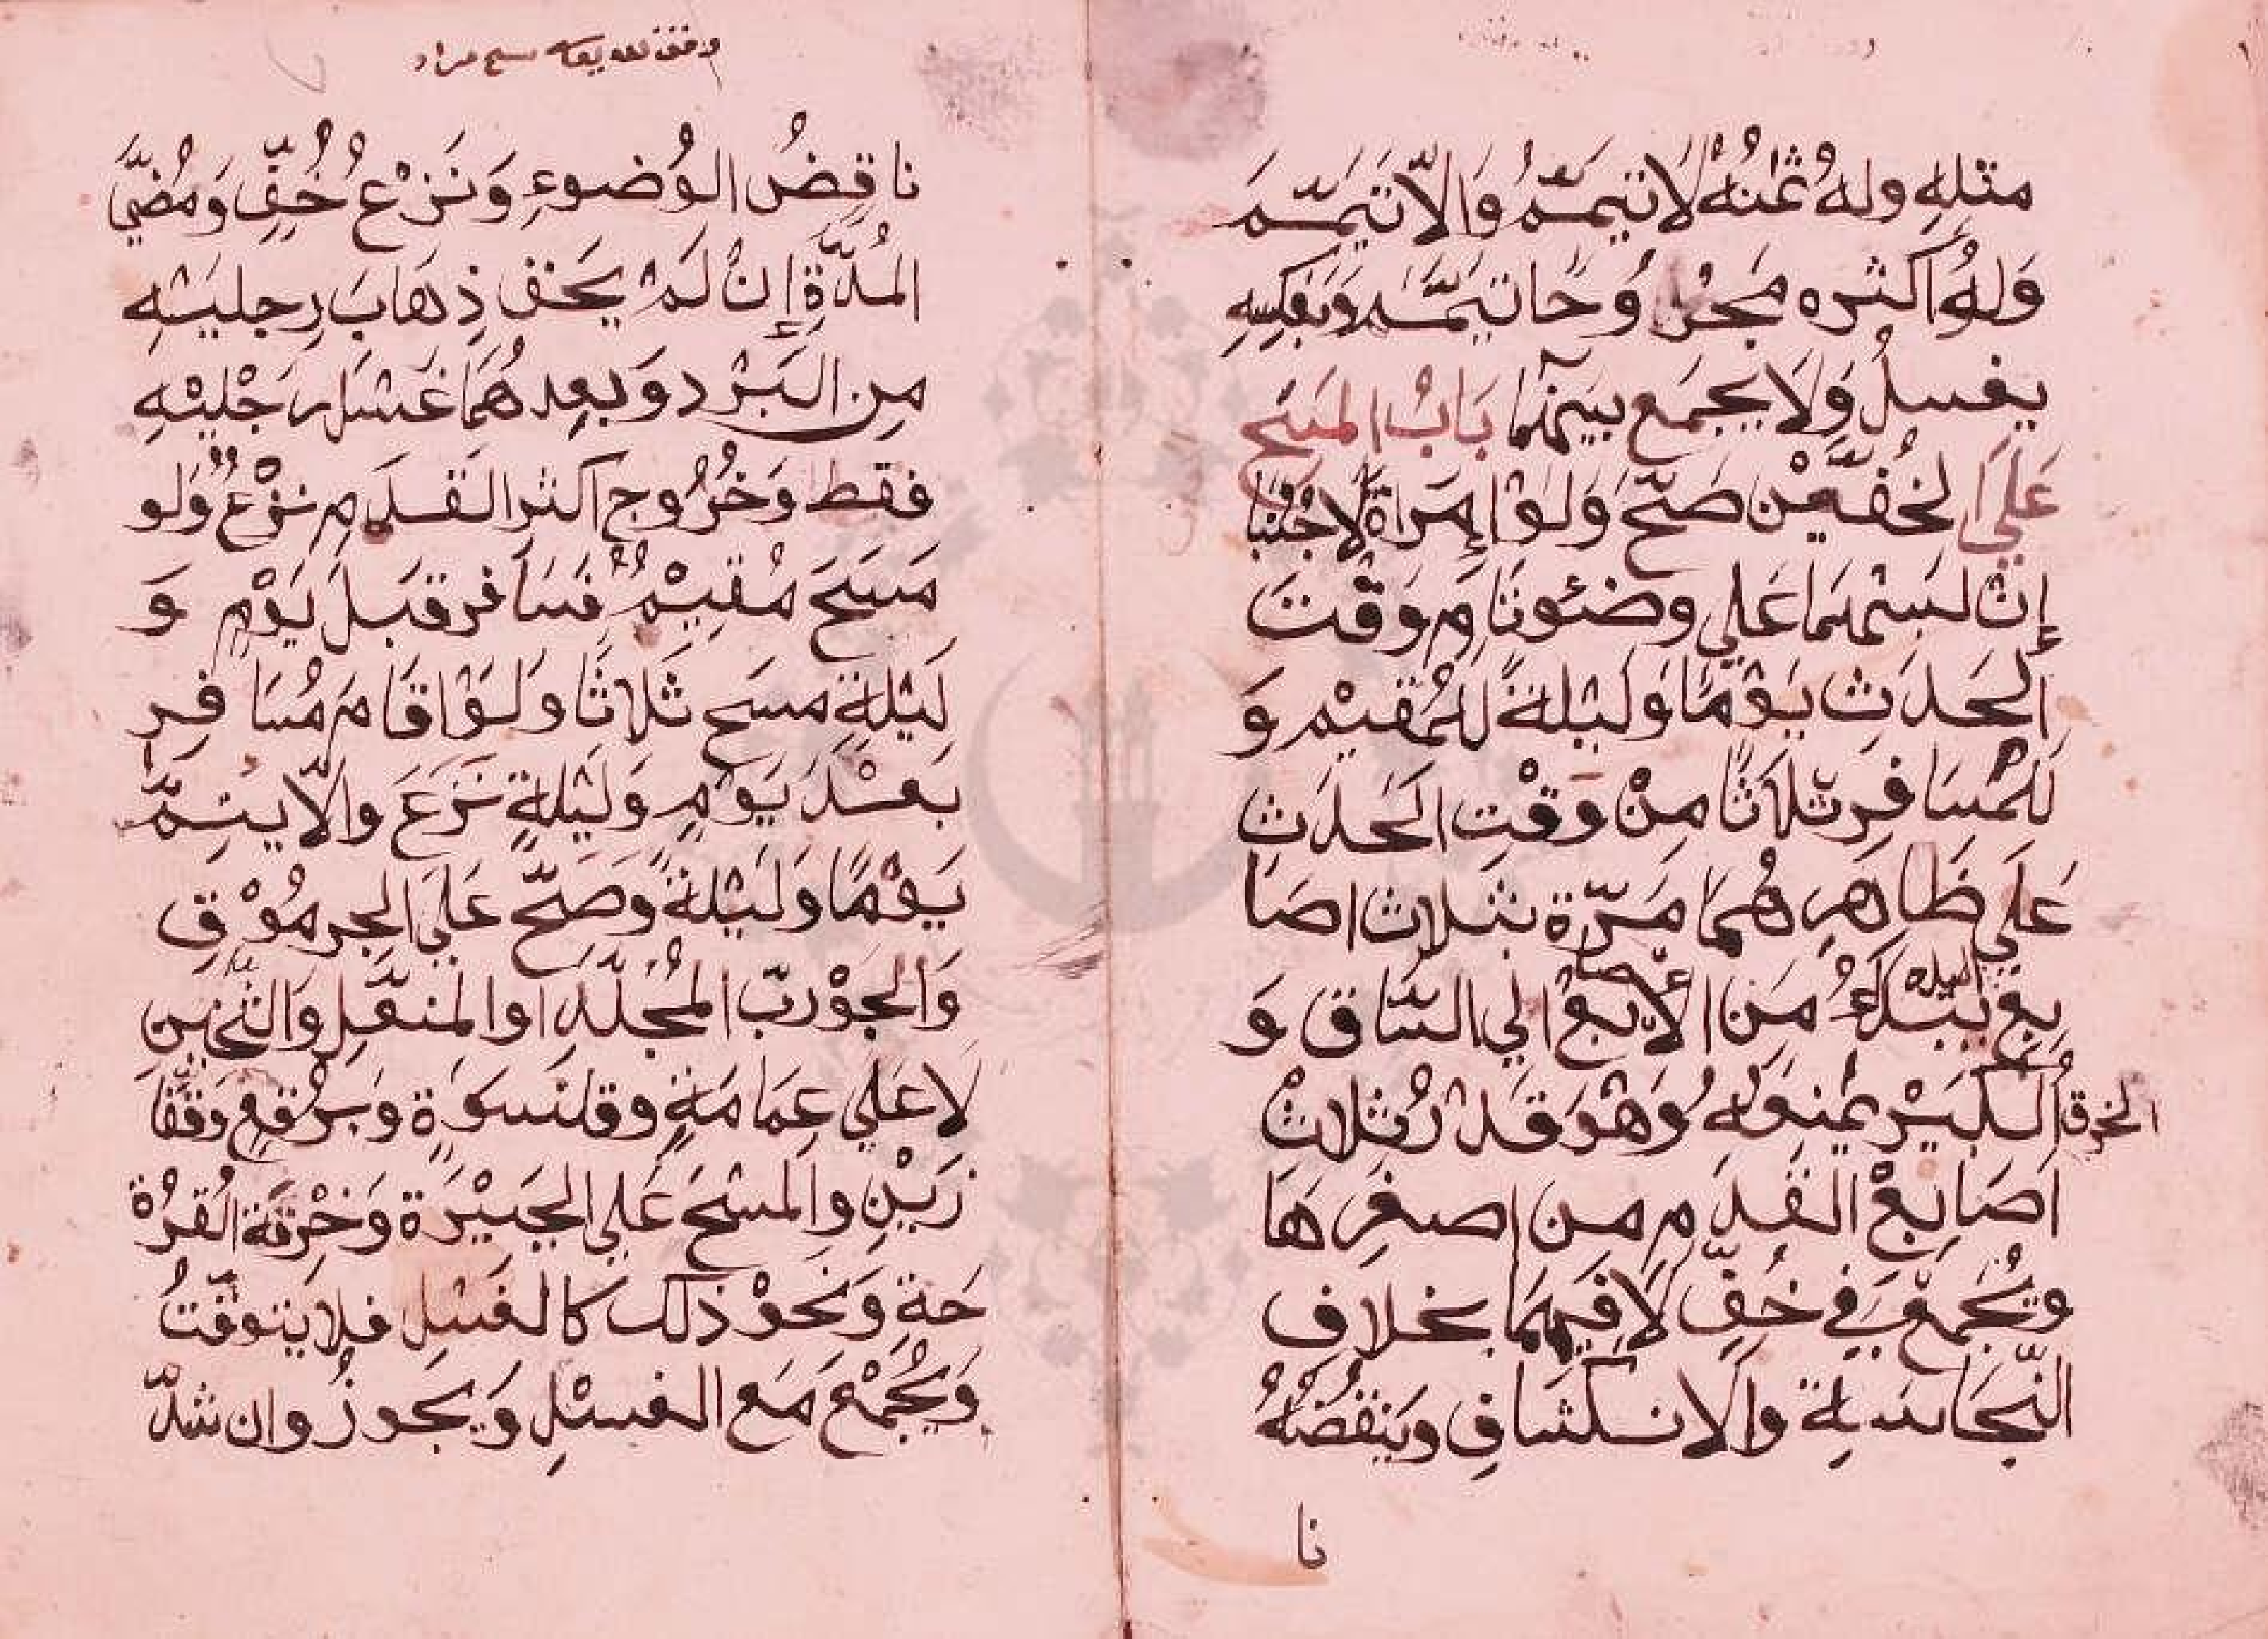 مثلهِ ولهُ ثمَنُهُ لَاتيمّمُ وَالّاتيمّمَ
وَلهُ اكثره مجرُوحًا تيمّمَ وَبعَكسِهِ
يغسلُ وَلَا يجمَع بينهُمَا بَابُ المسَح
عَلَى الخُفّيْنْ صَحّ وَلوْ اِمرَاةً لَا جُنبًا
إنْ لبسْهمَا عَلي وضئونَام وَقْتَ
الحَدَثِ يَوْمًا وَليْلةً للمُقيْم وَ
للمُسَافرِ ثلَاثًا مِنْ وَقْتِ الحَدَث
عَلَي ظَاهِرِهُمَا مَرّة بثلاث اصَا
بع يَبْدَءُ مَن الاصَابع الي السّاق وَ
الخرق الكَبيْر يمنعَهُ وَهْوَ قَدْرُ ثلاثْ
اصَابِعْ القَدَم من اصغرِهَا
ويُجْمَعُ في خُفّ لَا فِيهمَا بخلافِ
النّجَاسَةِ والانكشافِ وَينقُضهُ
نا
وقف لله
ناقِضُ الوُضوءِ وَنَزْعُ خُفّ وَمُضيّ
المُدّةِ إنْ لَمْ يَخف ذِهَابَ رِجليْهِ
مِن البَرْد وَبعدهُمَا غَسْل رَجْليْهِ
فقط وَخُرُوج اكثر القَدَم نزْعٌ وَلو
مَسَحَ مُقيْمٌ فسَافر قبَلَ يَوْمٍ وَ
لَيْلةٍ مسَح ثَلاثًا وَلوْ اقَامَ مُسَافِر
بَعْدَ يَوْمٍ وَلَيْلةٍ نَزَعَ والّا يُتِمّ
يَوْمًا وَلَيْلةً وَصَحّ عَلَي الجرمُوْقِ
وَالجَوْربّ المُجلّدِ او المنعّلِ وَالثّخِينِ
لَا عَلي عِمَامَةٍ وقلنَسوَةٍ وَبرْقعٍ وَقُفّا
زَيْنِ وَالمسْحَ عَلي الجَبيْرَة وَخِرْقَة القُرْ
حَةِ وَنَحوْ ذلك كالغسْلِ فلا يَتوقّتُ
وَيُجْمَعْ مَع الغسْلِ وَيَجوزُ وان شدّ